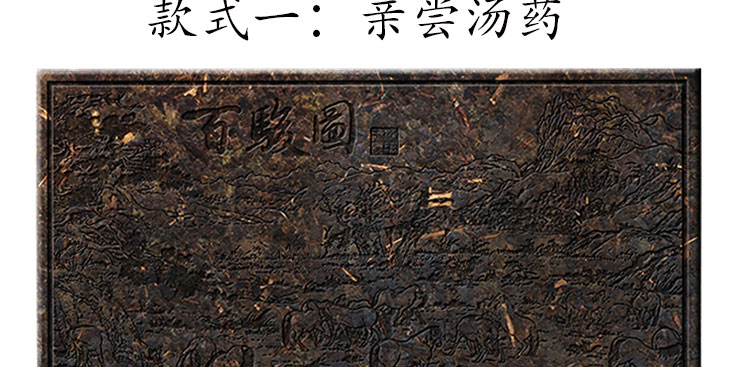 款式一：亲尝汤药
百駿圖